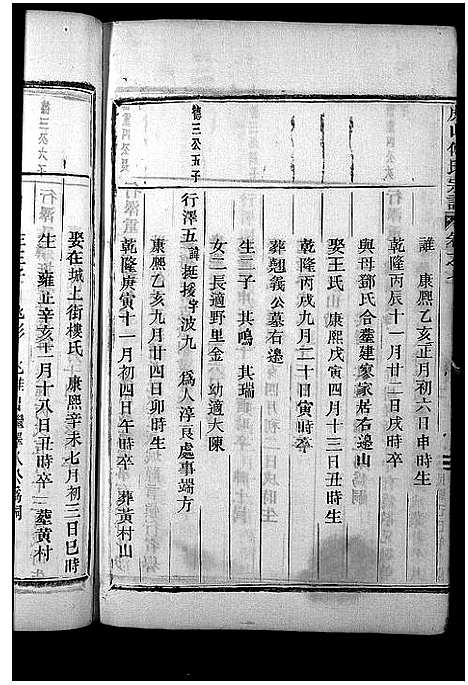 誰 康熙乙亥正月初六日申時生
乾隆丙辰十一月廿二日戌時卒
與母鄧氏合塟建 家居右邊山
娶王氏 康熙戊寅四月十三日丑時生
乾隆丙戌九月二十日寅時卒
葬翹義公墓右邊
生二子 其鳴 其瑞
女二長適野里金 幼適大陳
德三公五子
行澤五諱挺授字波九 為人淳良處事端方
康熙乙亥九月廿四日卯時生
乾隆庚寅十一月初四日午時卒 葬黃村山
娶在城上街樓氏 康熙辛未七月初三日巳時
生 雍正辛亥十一月十八日丑時卒 塟黃村